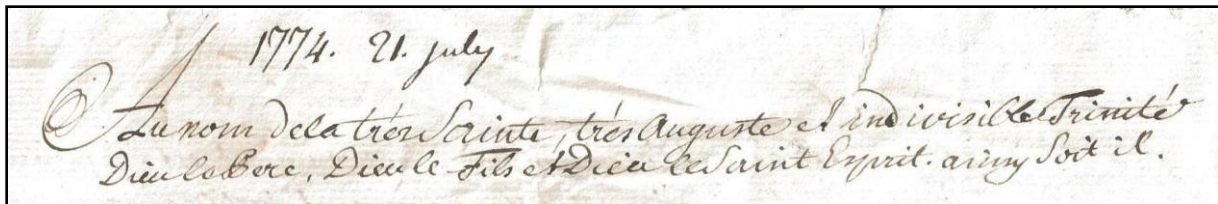 1774. 21. july
Au nom de la très Sainte, très Auguste et indivisible Trinité
Dieu le Pere, Dieu le Fils et Dieu le Saint Esprit. ainsy Soit il.